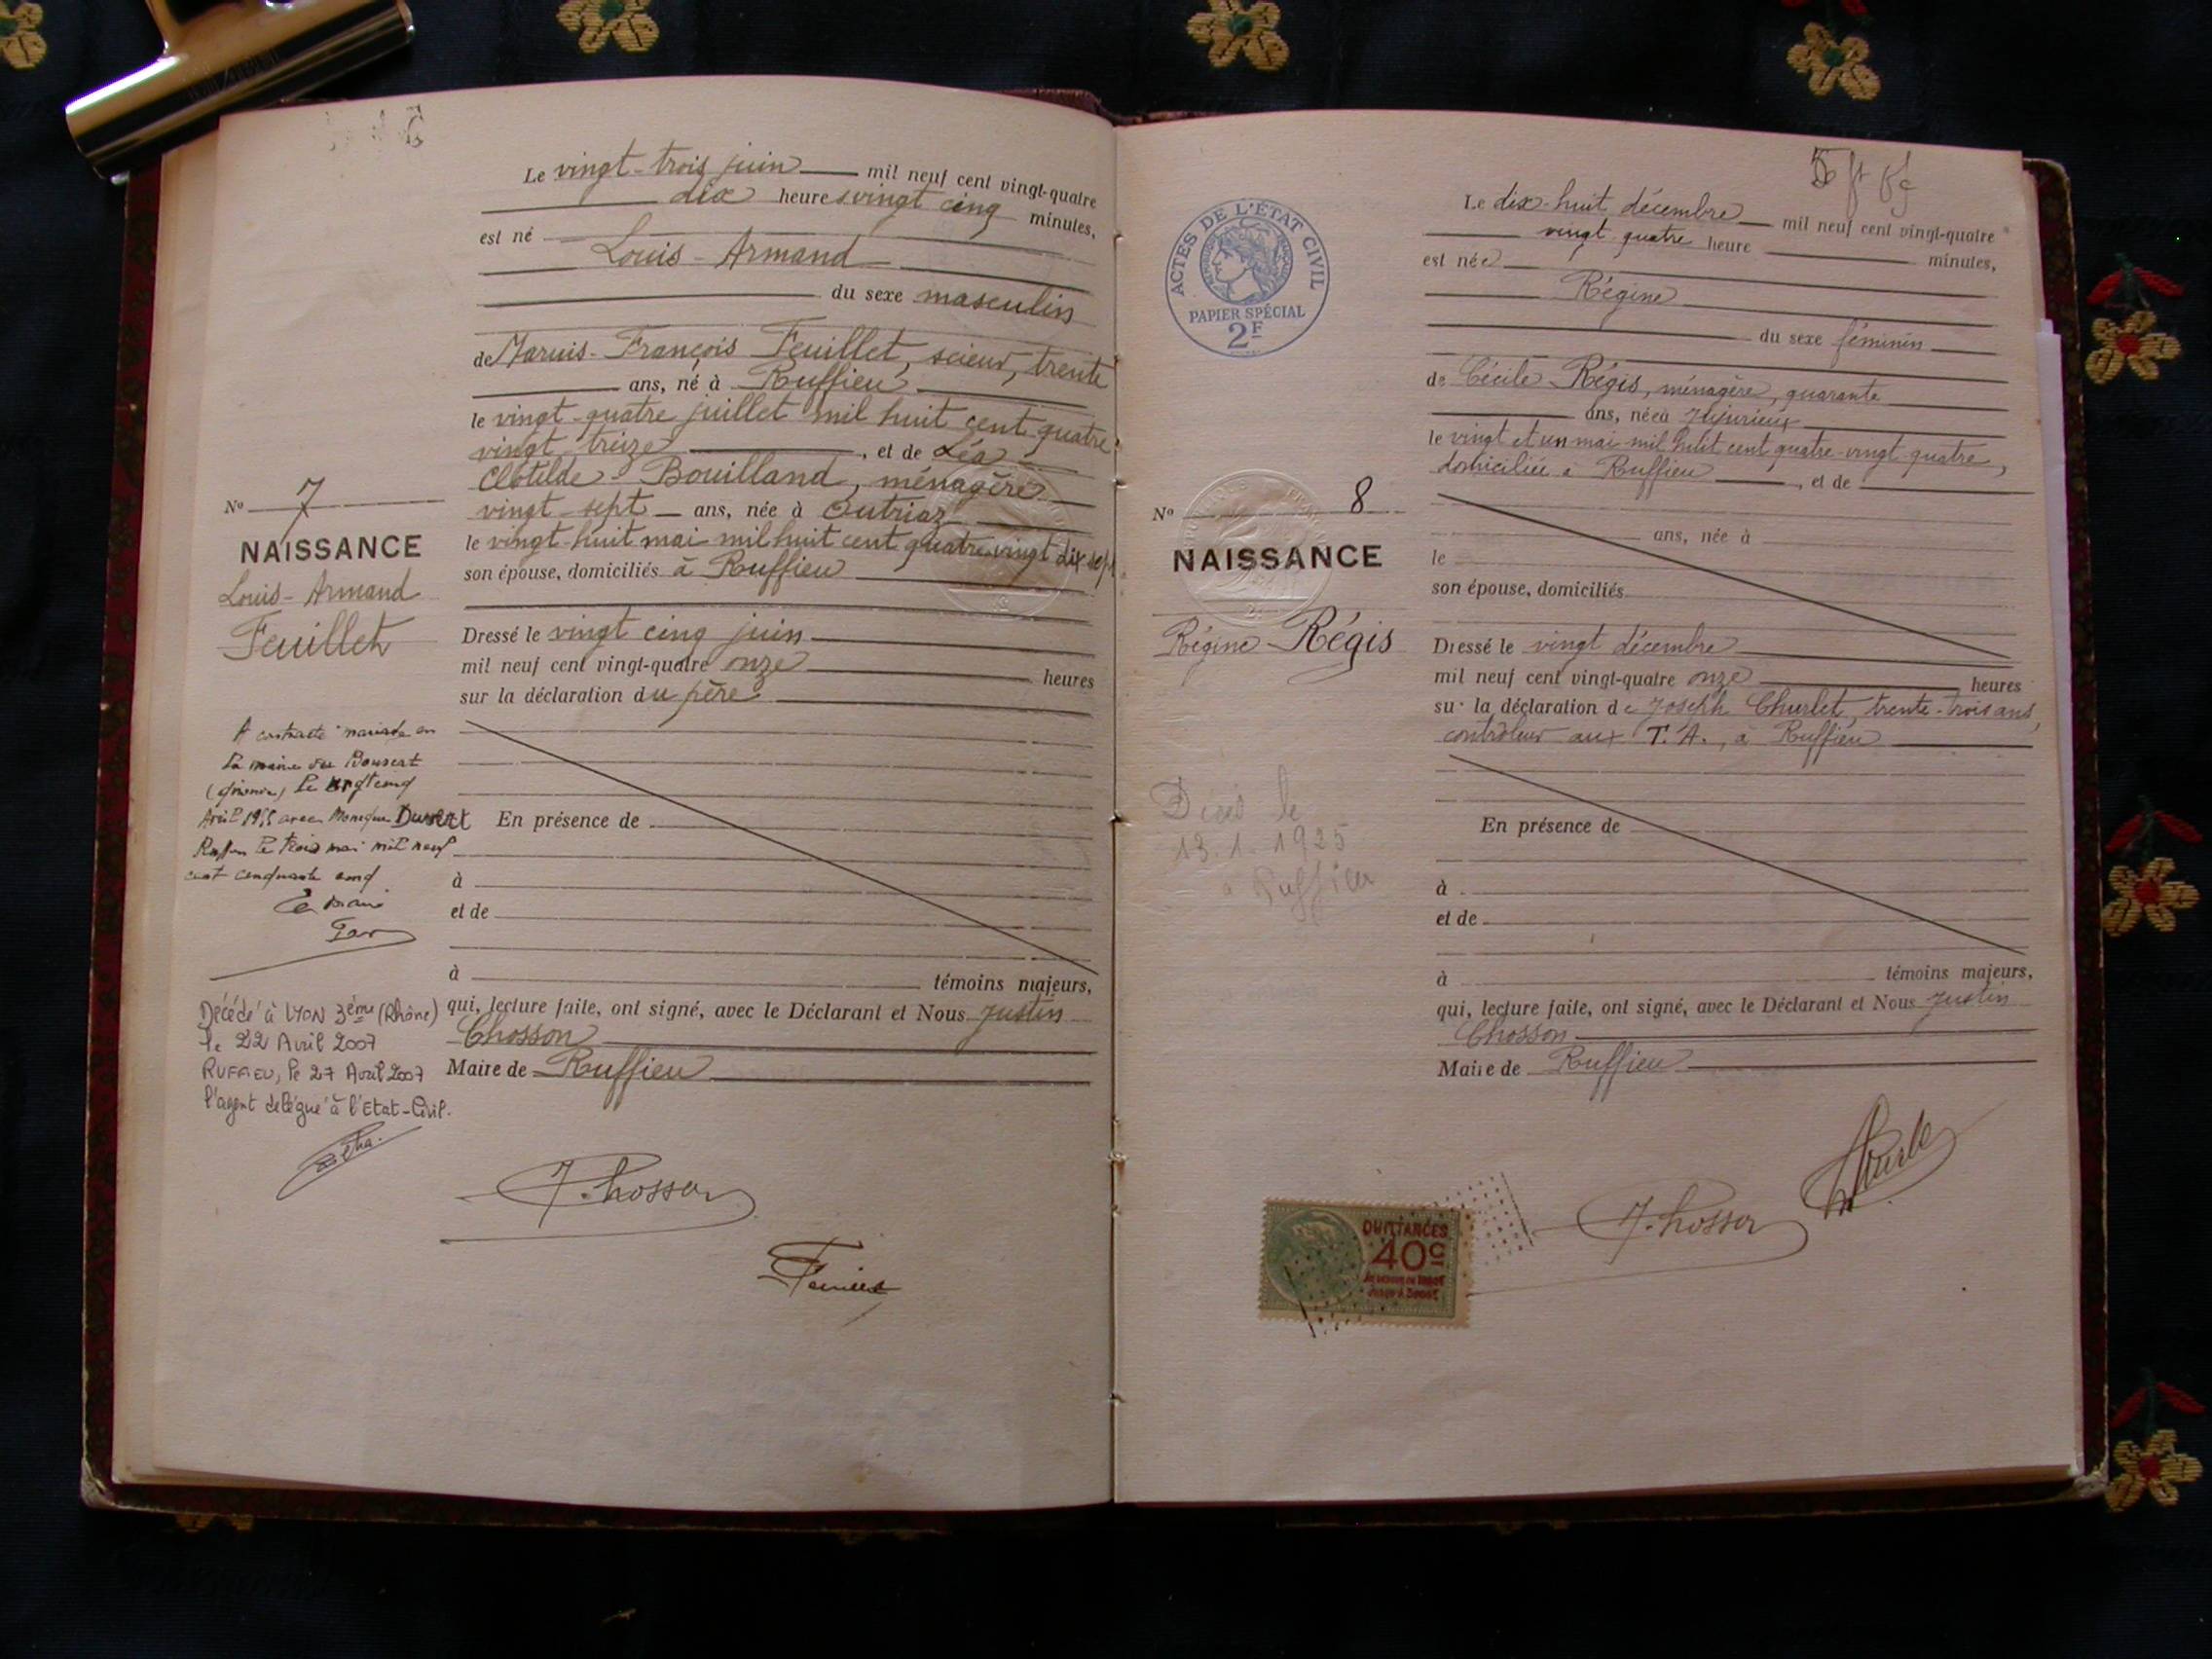 Le vingt-trois juin mil neuf cent vingt-quatre
dix heures vingt cinq minutes,
est né
Louis-Armand
du sexe masculin
de Marius-François Feuillet, scieur, trente
ans, né à Ruffieu
le vingt-quatre juillet mil huit cent quatre
vingt treize, et de Léa
Clotilde Bouilland, ménagère
vingt-sept ans, née à Outriaz
le vingt-huit mai mil huit cent quatre vingt dix sept
son épouse, domiciliés à Ruffieu
No 7
NAISSANCE
Louis-Armand
Feuillet
Dressé le vingt cinq juin
mil neuf cent vingt-quatre onze heures
sur la déclaration du père
A contracté mariage en
la mairie du
le vingt cinq
Avril 1955 avec Monique
Ruffieu le trois mai mil neuf
cent cinquante cinq
Le Maire
En présence de
à
et de
à témoins majeurs,
qui, lecture faite, ont signé, avec le Déclarant et Nous Justin
Chosson
Maire de Ruffieu
Décédé à LYON 3ème (Rhône)
le 22 Avril 2007
RUFFIEU, le 27 Avril 2007
l'agent délégué à l'Etat-Civil.
J. Chosson
Feuillet
5
ACTES DE L'ÉTAT CIVIL
PAPIER SPÉCIAL
2F
Le dix-huit décembre mil neuf cent vingt-quatre
vingt quatre heure minutes,
est née
Régine
du sexe féminin
de Cécile Régis, ménagère, quarante
ans, née à Jujurieux
le vingt et un mai mil huit cent quatre-vingt-quatre,
domiciliée à Ruffieu, et de
ans, née à
le
son épouse, domiciliés
No 8
NAISSANCE
Régine Régis
Dressé le vingt décembre
mil neuf cent vingt-quatre onze heures
sur la déclaration de Joseph Churlet, trente-trois ans,
contrôleur aux T.A., à Ruffieu
Décès le
13.1.1925
à Ruffieu
En présence de
à
et de
à témoins majeurs,
qui, lecture faite, ont signé, avec le Déclarant et Nous Justin
Chosson
Maire de Ruffieu
J. Chosson
QUITTANCES
40c